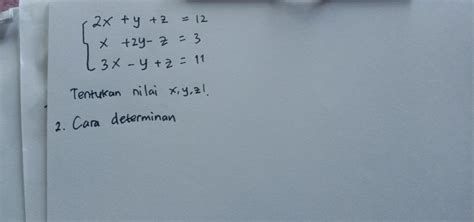 2x + y + z = 12
x + 2y - z = 3
3x - y + z = 11
Tentukan nilai x, y, z!
2. Cara determinan